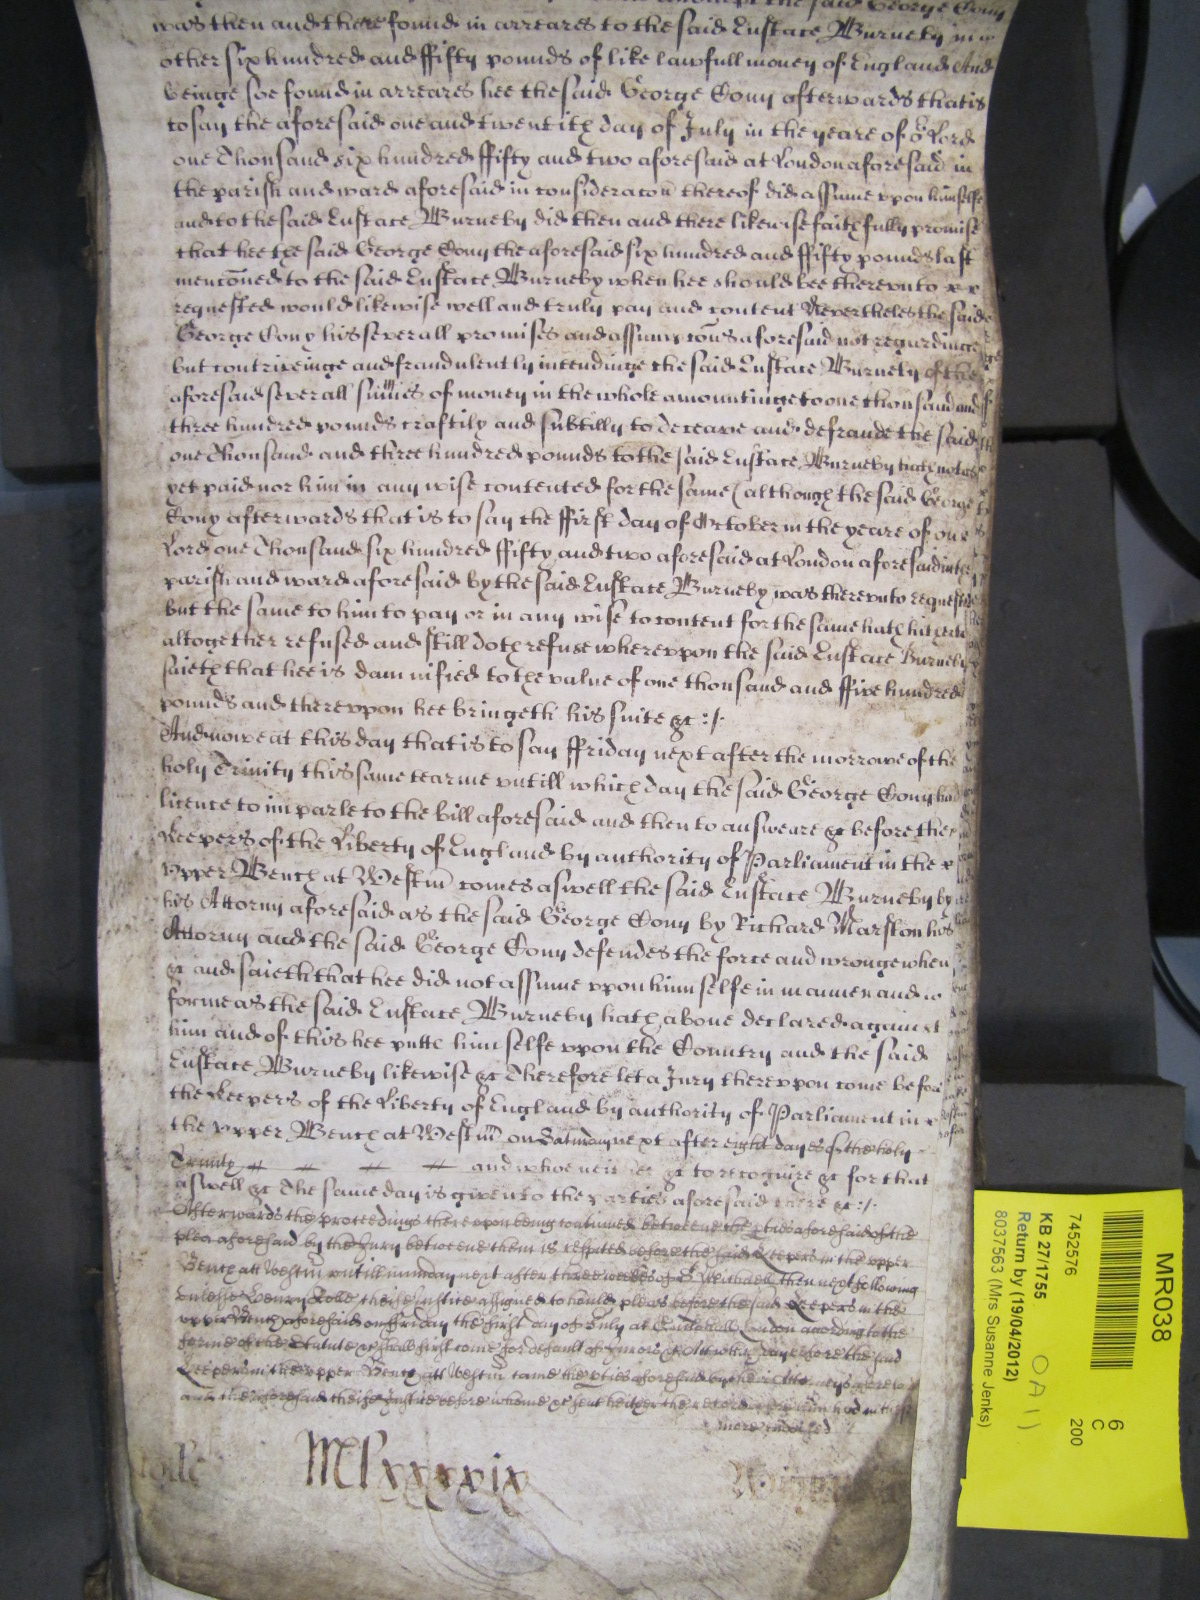 the said George Cony
was then and there found in arreares to the said Eustace Burneby in
other six hundred and ffifty pounds of like lawfull money of England And
beinge soe found in arreares hee the said George Cony afterwards that is
to say the aforesaid one and twentith day of July in the yeare of or Lord
one Thousand six hundred ffifty and two aforesaid at London aforesaid in
the parish and ward aforesaid in consideracon thereof did assume vpon himselfe
and to the said Eustace Burneby did then and there likewise faithfully promise
that hee the said George Cony the aforesaid six hundred and ffifty pounds last
menconed to the said Eustace Burneby when hee should bee therevnto
requested would likewise well and truly pay and content Nevertheles the said
George Cony his severall promises and assumpcons aforesaid not regardinge
but contriveinge and fraudulently intendinge the said Eustace Burneby of the
aforesaid severall summes of money in the whole amountinge to one thousand and
three hundred pounds craftily and subtilly to deceave and defraude the said
one Thousand and three hundred pounds to the said Eustace Burneby hath not as
yet paid nor him in any wise contented for the same (although the said George
Cony afterwards that is to say the ffirst day of October in the yeare of our
Lord one Thousand six hundred ffifty and two aforesaid at London aforesaid in the
parish and ward aforesaid by the said Eustace Burneby was therevnto requested
but the same to him to pay or in any wise to content for the same hath hitherto
altogether refused and still doth refuse wherevpon the said Eustace Burneby
saieth that hee is damnified to the value of one thousand and ffive hundred
pounds and therevpon hee bringeth his suite &c :/.
And nowe at this day that is to say ffriday next after the morrowe of the
holy Trinity this same tearme vntill which day the said George Cony had
licence to imparle to the bill aforesaid and then to answeare &c before the
Keepers of the Liberty of England by authority of Parliament in the
vpper Bench at Westm comes aswell the said Eustace Burneby by
his Attorny aforesaid as the said George Cony by Richard Marston his
Attorny and the said George Cony defendes the force and wronge when
&c and saieth that hee did not assume vpon himselfe in manner and
forme as the said Eustace Burneby hath above declared against
him and of this hee putts himselfe vpon the Country and the said
Eustace Burneby likewise &c Therefore let a Jury therevpon come before
the Keepers of the Liberty of England by authority of Parliament in
the vpper Bench at Westm on Saturday next after eight dayes of the holy
Trinity and whoe neither &c to recognize &c for that
aswell &c The same day is given to the parties aforesaid there &c :/.
Afterwards the proceedings therevpon being continued betweene the pties aforesaid of the
plea aforesaid by the Jury betweene them is respited before the said Keepers in the vpper
Bench att Westm vntill munday next after three weekes of St Michaell then next following
vnlesse Henry Rolle cheife Justice assigned to hould pleas before the said Keepers in the
vpper Bench aforesaid on ffriday the first day of July at Guildhall London according to the
forme of the Statute &c shall first come for default of Jurors &c Att which day before the said
Keepers in the vpper Bench att Westm came the pties aforesaid by their Attorneys aforesaid
and the aforesaid cheife Justice before whome &c sent hether the record had in these
words endorsed
Rolle Mlxxxxix
MR038
6
C
200
7452576
KB 27/1755 OA11
Return by (19/04/2012)
8037563 (Mrs Susanne Jenks)